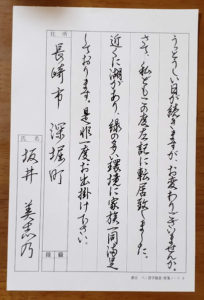 うっとうしい日が続きますが、お変わりございませんか。
さて、私どもこの度左記に転居致しました。
近くに湖があり、緑の多い環境に家族一同満足
しております。是非一度お出掛け下さい。
住所
長崎市 深堀町
氏名
坂井 美志乃
段級